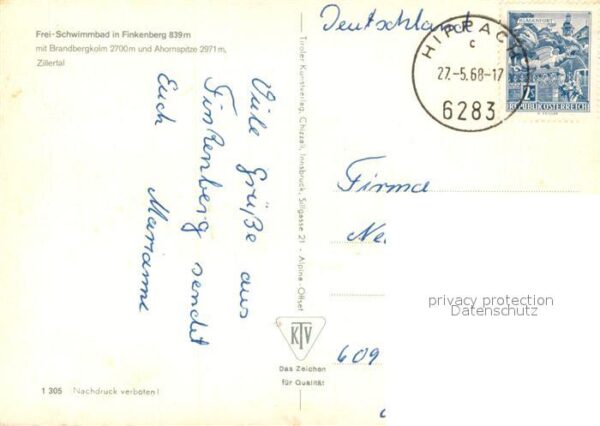 Frei-Schwimmbad in Finkenberg 839m
mit Brandbergkolm 2700m und Ahornspitze 2971m,
Zillertal
Viele Grüße aus
Finkenberg sendet
Euch
Marianne
Tiroler Kunstverlag, Chizzali, Innsbruck, Sillgasse 21 - Alpina-Offset
KTV
Das Zeichen
für Qualität
1 305 Nachdruck verboten!
Deutschland
HIPPACH
c
27.-5.68-17
6283
KLAGENFURT
REPUBLIK ÖSTERREICH
Firma
Ne
609
privacy protection
Datenschutz